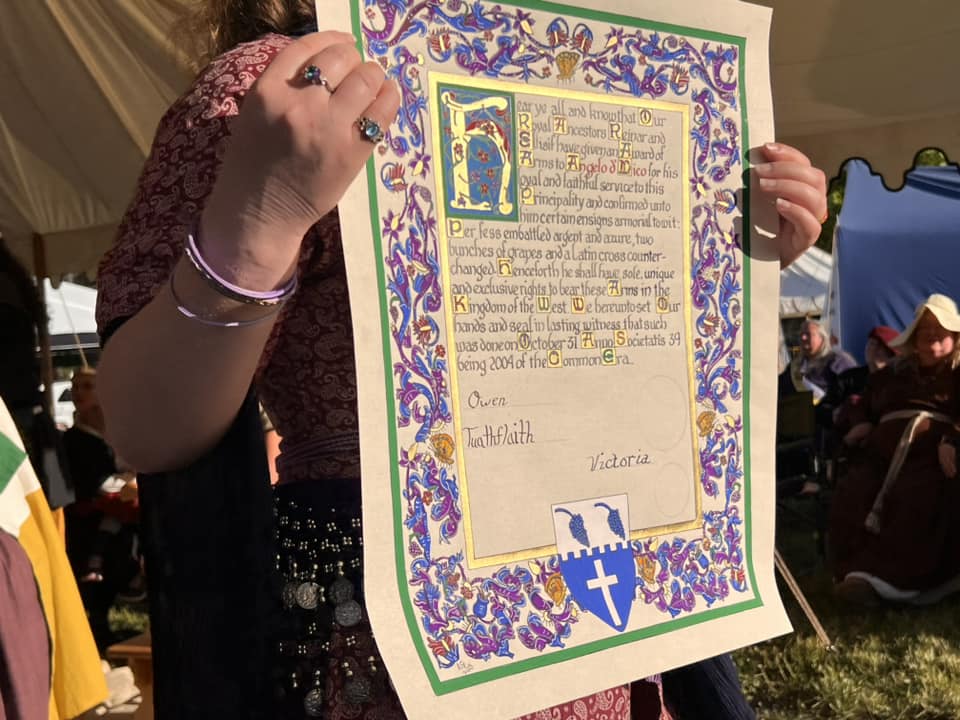 Hear ye all and know that Our
Royal Ancestors Reinar and
have given an Award of
Arms to Angelo d Mico for his
loyal and faithful service to this
Principality and confirmed unto
him certain ensigns armorial to wit:
Per fess embattled argent and azure, two
bunches of grapes and a Latin cross counter-
changed. Henceforth he shall have sole, unique
and exclusive rights to bear these Arms in the
Kingdom of the West. We hereunto set Our
hands and seal in lasting witness that such
was done on October 31 Anno Societatis 39
being 2004 of the Common Era.
Owen
Tuathflaith
Victoria